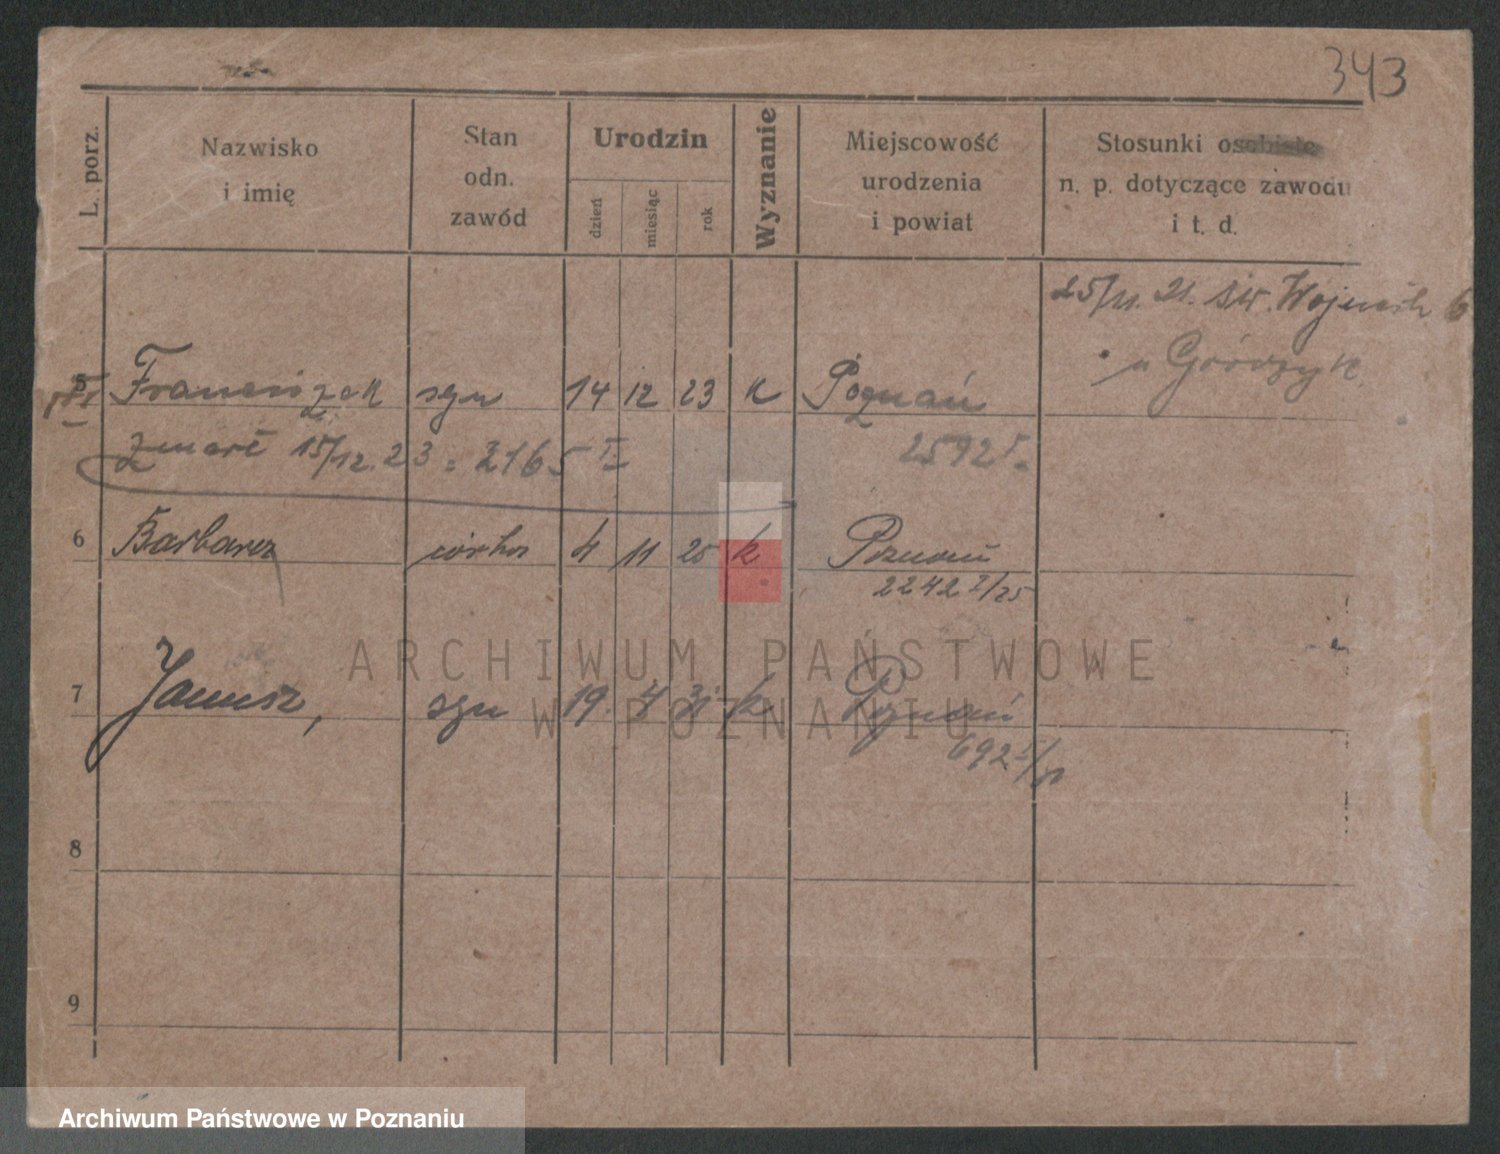 343
L. porz.
Nazwisko
i imię
Stan
odn.
zawód
Urodzin
dzień
miesiąc
rok
Wyznanie
Miejscowość
urodzenia
i powiat
Stosunki osobiste
n. p. dotyczące zawodu
i t. d.
25/11. 21. św. Wojciech 6
u Górczyk
5 Franciszek syn 14 12 23 K Poznań
zmarł 15/12.23 = 2165 I 2592 I
6 Barbara córka 4 11 25 k Poznań
2242 I/25
7 Janusz, syn 19. 4 31 k Poznań
692 I/31
8
9
ARCHIWUM PAŃSTWOWE
W POZNANIU
Archiwum Państwowe w Poznaniu